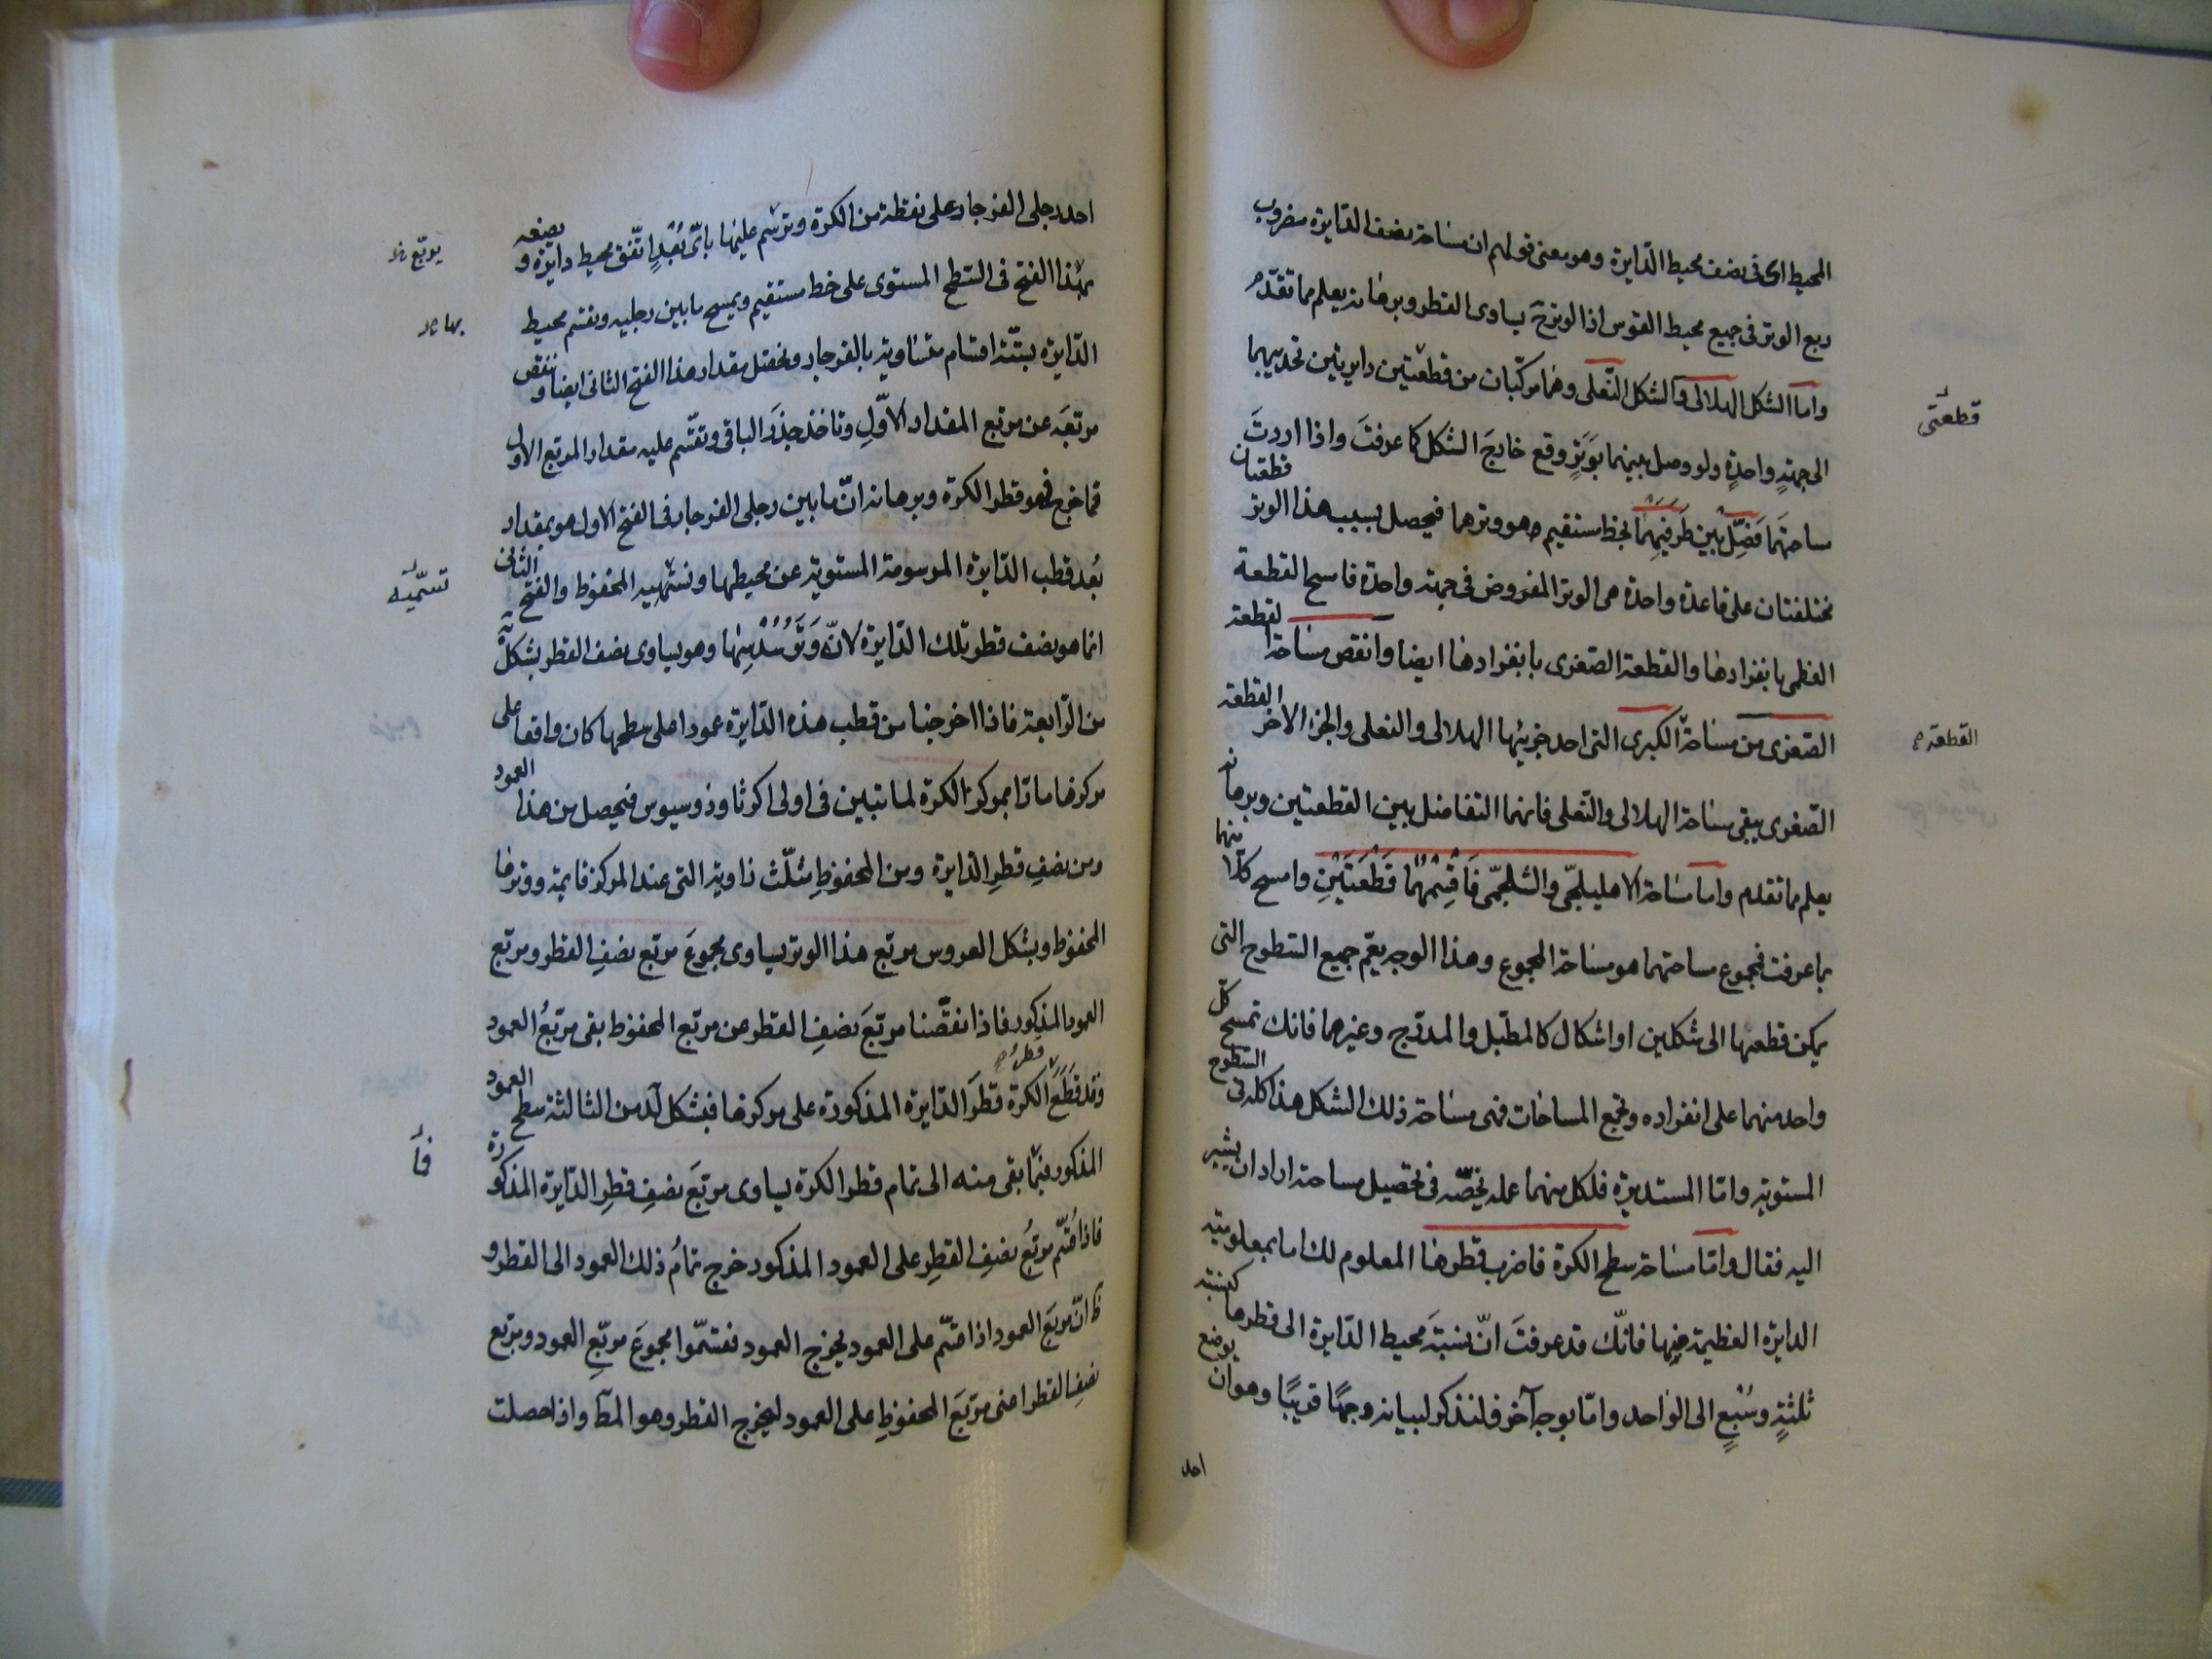 المحيط اى فى نصف محيط الدّايرة وهو معنى قولهم ان مساحة نصف الدّايرة مضروب
ربع الوتر فى جميع محيط القوس اذ الوترح يساوى القطر وبرهانه يعلم مما تقدّم
واما الشكل الهلالى والشكل النّعلى وهما مركّبان من قطعتين دايرتين تحديبهما
قطعتَى
الى جهةٍ واحدةٍ ولو وصل بينهما بوَتَرٍ وقع خارجَ الشكل كما عرفتَ واذا اردتَ
مساحتهَما فَصِّلْ بين طَرَفَيهِمَا بخط مستقيم وهو وترهما فيحصل بسبب هذا الوتر قطعتان
مختلفتان على قاعدة واحدة هى الوتر المفروض فى جهة واحدة فامسح القطعة
العظمى بانفرادها والقطعة الصّغرى بانفرادها ايضا وانقص مساحة القطعة
الصّغرى من مساحة الكبرى التى احد جزئيها الهلالى والنعلى والجزء الاخر القطعة
القطعة
الصّغرى يبقى مساحة الهلالى والنّعلى فانهما التفاضل بين القطعتين وبرهانه
يعلم مما تقدم واما مساحة الاهليلجّى والشلجمّى فَاقْسِمْهُمَا قَطْعَتَيْنِ وامسح كلاّ منهما
بما عرفت فمجموع مساحتهما هو مساحة المجموع وهذا الوجه يعّم جميع السّطوح التى
يمكن قطعها الى شكلين او اشكال كالمطبّل والمدرّج وغيرهما فانك تمسح كلّ
واحد منهما على انفراده وتجمع المساحات فهى مساحة ذلك الشكل هذا كله فى السّطوح
المستوية وامّا المستديرة فلكل منهما عمله يخصّه فى تحصيل مساحته اراد ان يشير
اليه فقال وامّا مساحة سطح الكرة فاضرب قطرها المعلوم لك اما بمعلومية
الدايرة العظيمة منها فانّك قد عرفتَ انّ نسبةَ محيط الدّايرة الى قطرها كنسبة
ثلثةٍ وسُبْعٍ الى الواحد وامّا بوجهٍ آخر فلنذكر لبيانه وجهًا قريبًا وهو ان يوضع
احد
احد رجلى الفرجار على نقطة من الكرة وترسم عليها باىّ بُعْدٍ اتّفق محيط دايرة ويضعه
بهذا الفتح فى السّطح المستوى على خط مستقيم ويمسح ما بين رجليه ونقسم محيط
الدّايرة بستّة اقسام متساوية بالفرجار ونحصّل مقدار هذا الفتح الثانى ايضا وننقص
مربّعَه عن مربّع المقدار الاوّلِ وتاخذ جذرَ الباقى وتقسّم عليه مقدار المربّع الاول
فما خرج فهو قطر الكرة وبرهانه انّ ما بين رجلى الفرجار فى الفتح الاول هو بمقدار
بُعد قطب الدّايرة المرسومة المستوية عن محيطها ونسّميه المحفوظ والفتح الثانى
انما هو نصف قطر تلك الدّايرة لانّه وَتَرُ سُدْسِهَا وهو يساوى نصف القطر بشكل
من الرّابعة فاذا اخرجنا من قطب هذه الدّايرة عمودا على سطحها كان واقعا على
مركزها مارّا بمركز الكرة لما تبيّن فى اولى اكر ثاوذوسيوس فيحصل من هذا العمود
ومن نصفِ قطرِ الدّايرة ومن المحفوظِ مثلّث زاويته التى عند المركز قايمة ووترها
المحفوظ وبشكل العروس مربّع هذا الوتر يساوى مجموعَ مربّع نصفِ القطر ومربّع
العمود المذكور فاذا نقّصنا مربّعَ نصفِ القطر من مربّع المحفوظ بقى مربّعُ العمود
وقد قَطَعَ الكرة قطرَ الدّايرة المذكورة على مركزها فبشكل لَه من الثالثة سطح العمود
المذكور فيما بقى منه الى تمام قطر الكرة يساوى مربّعَ نصفِ قطرِ الدّايرة المذكورة
فاذا قُسّم مربّعُ نصفِ القطرِ على العمود المذكور خرج تمامُ ذلك العمود الى القطر و
ظ انّ مربّعَ العمود اذا قسّم على العمود يخرج العمود فقسّموا مجموعَ مربّعِ العمود ومربّع
نصفِ القطر اعنى مربّعَ المحفوظِ على العمود ليخرج القطر وهو المط واذا حصلت